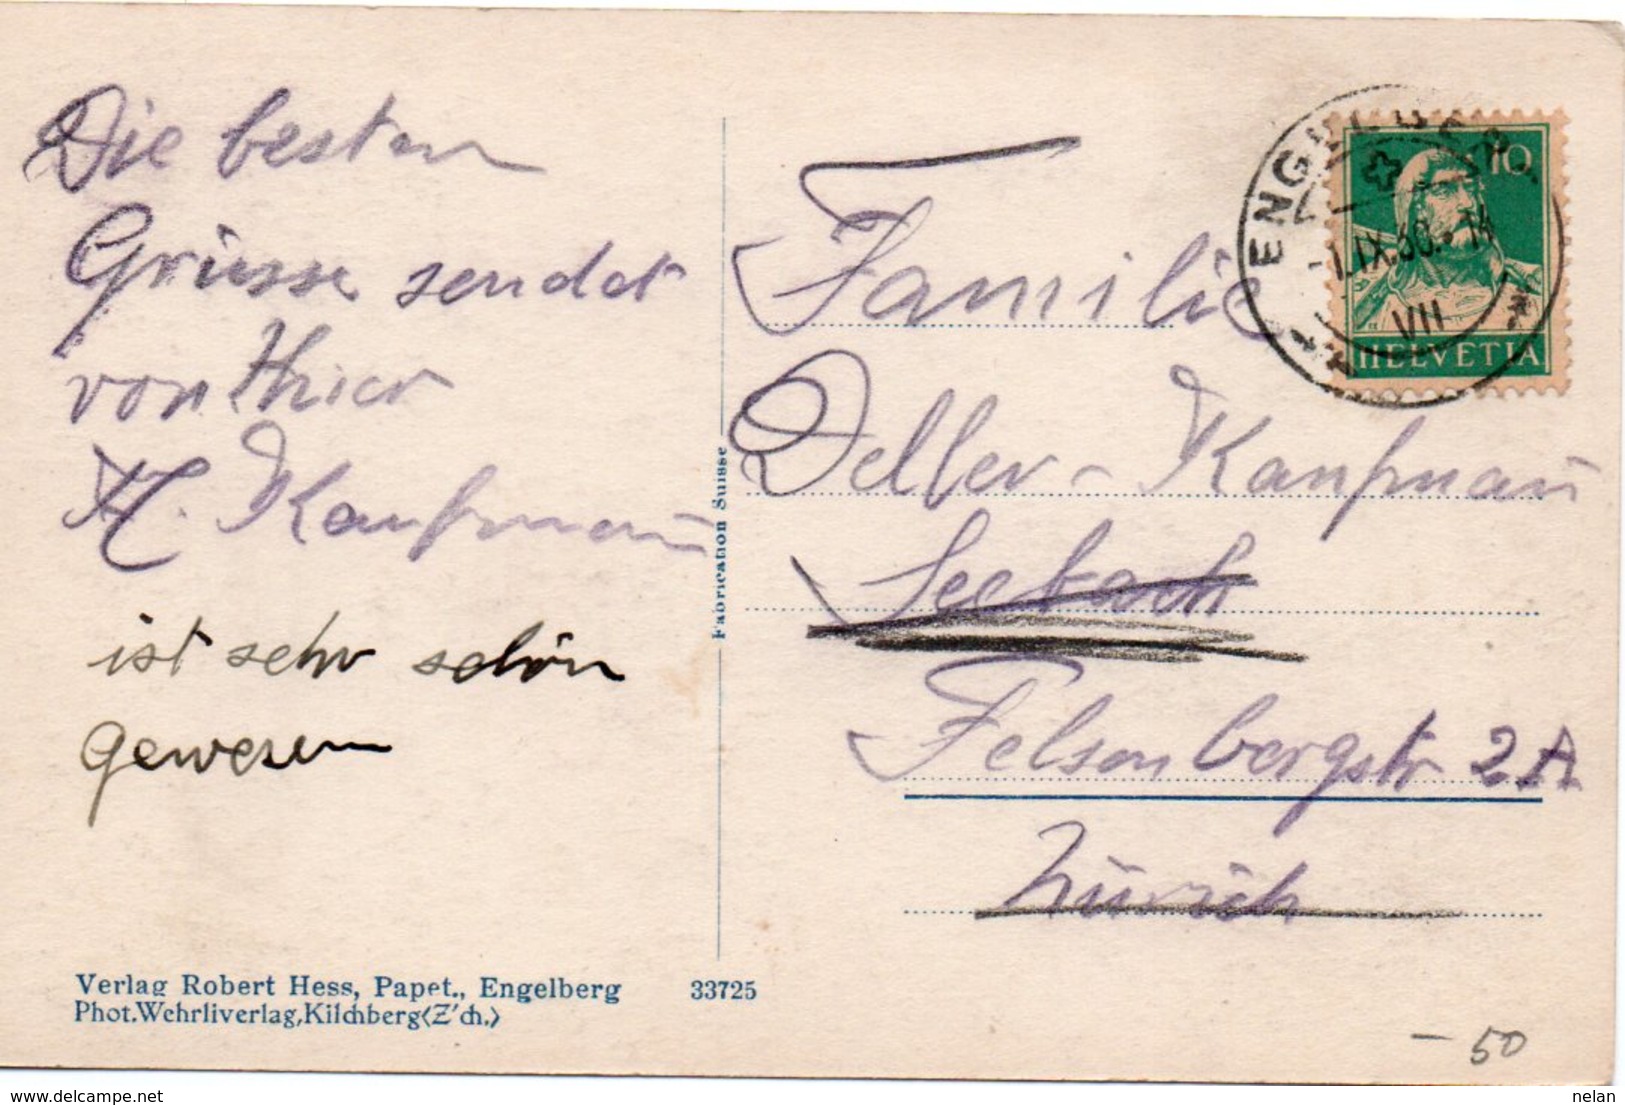 Die besten
Grüsse sendet
von Hier
H. Kaufmann
ist sehr schön
gewesen
Verlag Robert Hess, Papet., Engelberg 33725
Phot.Wehrliverlag,Kilchberg(Z'ch.)
Fabrication Suisse
ENGELBERG
1.IX.30.-14
VII
10
HELVETIA
Familie
Deller-Kaufmann
Seebach
Felsenbergstr 2A
Zürich
- 50
delcampe.net
nelan